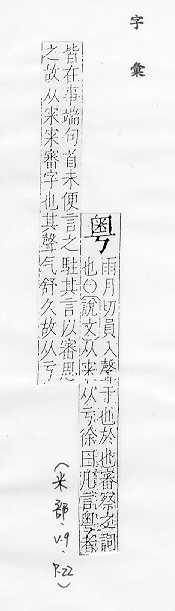 字彙
粤
雨月切員入聲于也於也審察之詞
也〇說文从宷从亏徐曰凡言粤者
皆在事端句首未便言之駐其言以審思
之故从宷宷審字也其聲气舒久故从亏
(米部.V.9.P.22)